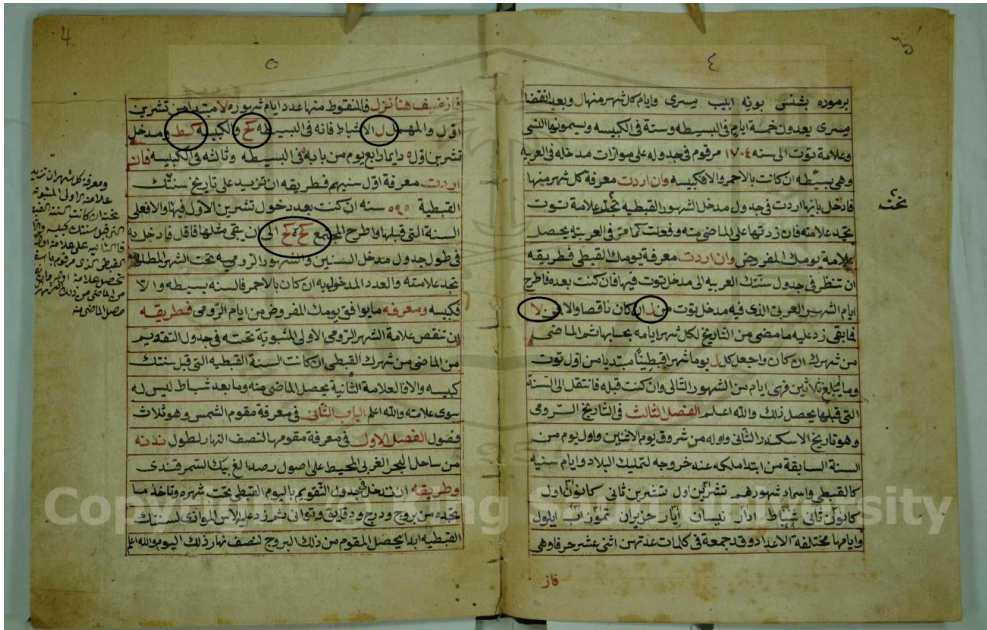 ٤
برموده بشنس بونه ابيب مسرى وايام كل شهر منها ل وبعد انقضا
مسرى يعدون خمسة ايام في البسيطه وستة في الكبيسه ويسمونها النسي
وعلامة توت الى سنه ١٧٠٤ مرقوم في جدوله على موازات مدخله في العربيه
وهي بسيطه ان كانت بالاحمر والا فكبيسه وان اردت معرفة كل شهر منها
فادخل بايها اردت في جدول مدخل الشهور القبطيه تجد علامته فان زدتها على الماضي منه وفعلت كما مر في العربيه يحصل
علامة يومك المفروض وان اردت معرفة يومك القبطي فطريقه
ان تنظر في جدول سنتك العربيه الى مدخل توت فيها فان كنت بعده فاطرح
ايام الشهر العربي الذي فيه مدخل توت من ان كان ناقصا والا
فما بقي زد عليه ما مضى من التاريخ لكل شهر ايامه بحسابها ثم الماضي
من شهرك ان كان واجعل كل ل يوما شهرا قبطيا مبتديا من اول توت
وما لم يبلغ ثلاثين فهي ايام من الشهور التالي وان كنت قبله فانتقل الى السنة
التي قبلها يحصل ذلك والله اعلم الفصل الثالث في التاريخ الرومي
وهو تاريخ الاسكندر الثاني واوله من شروق يوم الاثنين واول يوم من
السنة السابقة من ابتدا ملكه عند خروجه لتمليك البلاد وايام سنيه
كالقبطي واسماء شهورهم تشرين اول تشرين ثاني كانون اول
كانون ثاني شباط اذار نيسان ايار حزيران تموز اب ايلول
وايامها مختلفة الاعداد وقد جمعة في كلمات عدتهن اثنى عشر حرفا وهي
فاز
٥
فاز ضيف هنا نزل فالمنقوط منها عدد ايام شهوره لا مبتديا من تشرين
اول والمهمول ل الا شباط فانه في البسيطه كح والكبيسه كط ومدخل
تشرين اول دايما رابع يوم من بابه في البسيطه وثالثه في الكبيسه فان
اردت معرفة اول سنيهم فطريقه ان تزيد على تاريخ سنتك
القبطية ٥٩٥ سنه ان كنت بعد دخول تشرين الاول فيها والا فعلى
السنة التي قبلها واطرح المجتمع كح كح الى ان يبقى مثلها فاقل فادخل به
في طول جدول مدخل السنين والشهور الروميه تحت الشهر المطلوب
تجد علامته والعدد المدخول به ان كان بالاحمر فالسنه بسيطه والا
فكبيسه ومعرفه ما يوافق يومك المفروض من ايام الرومي فطريقه
ان تنقص علامة الشهر الرومي الاولى المثبوتة تحته في جدول التقويم
من الماضي من شهرك القبطي ان كانت السنة القبطيه التي قبل سنتك
كبيسه والا فالعلامة الثانية يحصل الماضي منه وما بعد شباط ليس له
سوى علامته والله اعلم الباب الثاني في معرفة مقوم الشمس وهو ثلاث
فصول الفصل الاول في معرفة مقومها لنصف النهار لطول
من ساحل البحر الغربي المحيط على اصول رصد الغ بيك السمرقندي
وطريقه ان تدخل في جدول التقويم باليوم القبطي تحت شهره وتاخذ ما
تجده من بروج ودرج ودقايق وثواني ثم زد عليه الاس الموازي لسنتك
القبطيه ابدا يحصل المقوم من ذلك البروج لنصف نهار ذلك اليوم والله اعلم
ومعرفة كل شهر ان تزيد
علامته الاولى المثبوتة
تحته ان كانت السنة القبطيه
التي قبل سنتك كبيسه والا
فالثانيه على علامة اول
تحصل علامة
حصل الماضي منه
تحت